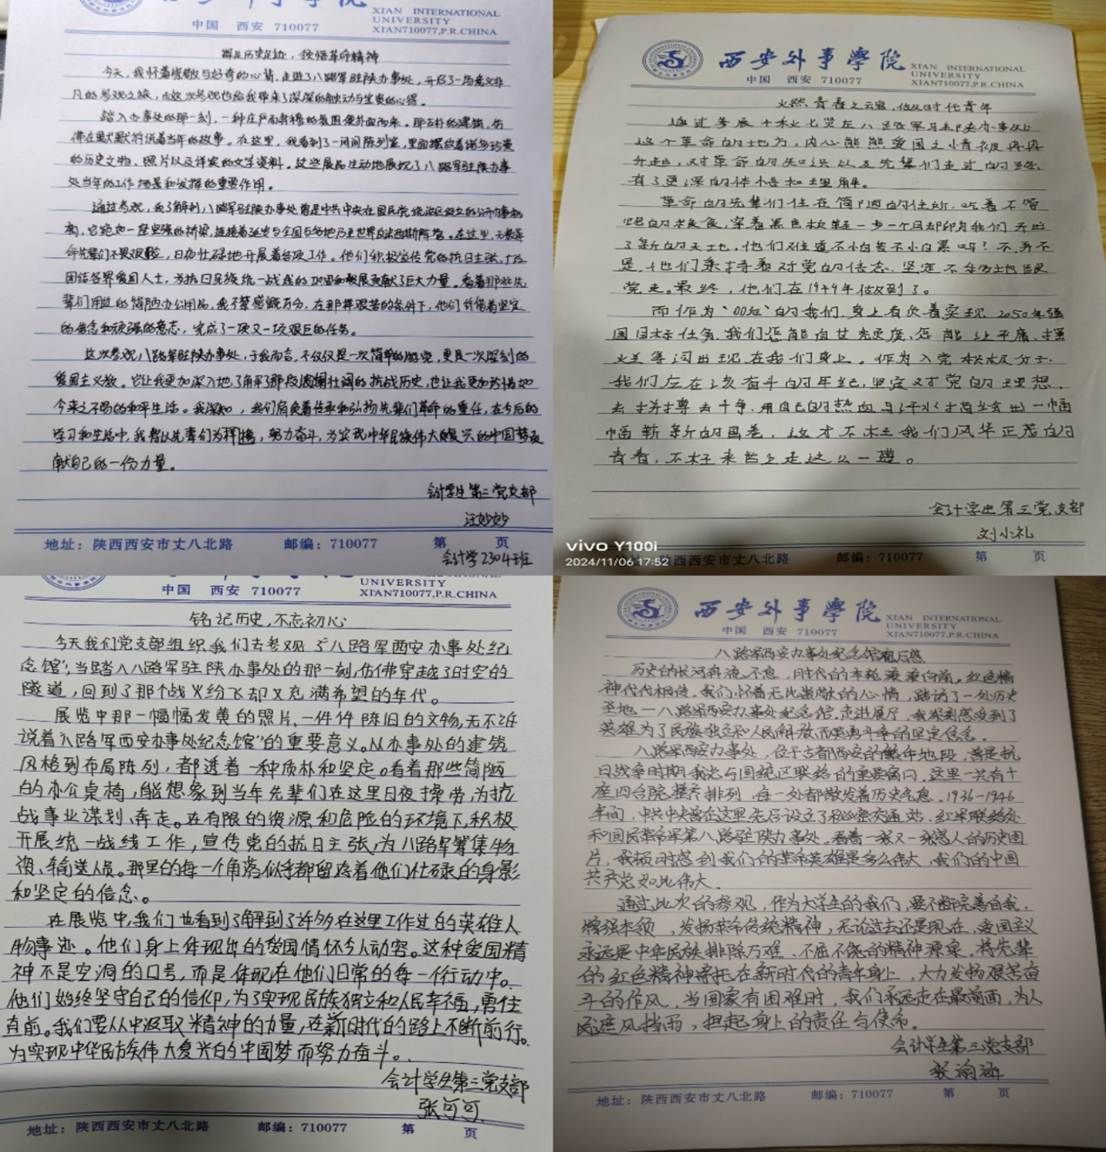 XIAN INTERNATIONAL
UNIVERSITY
中国 西安 710077
XIAN710077,P.R.CHINA
踏足历史足迹，领悟革命精神
今天，我怀着崇敬与好奇的心情，走进了八路军驻陕办事处，开启了一场意义非
凡的参观之旅，而这次参观也给我带来了深深的触动与宝贵的心得。
踏入办事处的那一刻，一种庄严而肃穆的氛围便扑面而来。那古朴的建筑，仿
佛在默默诉说着当年的故事。在这里，我看到一间间陈列室，里面摆放着诸多珍贵
的历史文物、照片以及详实的文字资料。这些展品生动地展现了八路军驻陕办事
处当年的工作场景和发挥的重要作用。
通过参观，我了解到八路军驻陕办事处曾是中共中央在国民党统治区设立的公开办事机
构，它宛如一座坚强的桥梁，连接着延安与全国各地乃至世界反法西斯阵营。在这里，无数革
命先辈们不畏艰险，日夜忙碌地开展着各项工作。他们积极宣传党的抗日主张，广泛
团结各界爱国人士，为抗日民族统一战线的巩固和发展贡献了巨大力量。看着那些先
辈们用过的简陋办公用品，我不禁感慨万分，在那样艰苦的条件下，他们凭借着坚定
的信念和顽强的意志，完成了一项又一项艰巨的任务。
这次参观八路军驻陕办事处，于我而言，不仅仅是一次简单的游览，更是一次深刻的
爱国主义教。它让我更加深入地了解了那段波澜壮阔的抗战历史，也让我更加珍惜如
今来之不易的和平生活。我深知，我们肩负着传承和弘扬先辈们革命的重任，在今后的
学习和生活中，我将以先辈们为榜样，努力奋斗，为实现中华民族伟大复兴的中国梦贡
献自己的一份力量。
会计学生第三党支部
汪妙妙
地址：陕西西安市丈八北路 邮编：710077 第 页
会计学2304班
西安外事学院
XIAN INTERNATIONAL
UNIVERSITY
中国 西安 710077
XIAN710077,P.R.CHINA
火燃青春之云霞，做及时代青年
通过参展七贤庄八路军驻陕办事处
这个革命的地方，内心熊熊爱国之情衣冉冉
升起，对革命的知识以及先辈们走过的路
有了更深的体悟和理解。
革命的先辈们住在简陋的住所，吃着不够
饱的粮食，穿着黑色一步一个脚印为我们开启
了新的天地，他们难道不怕苦不怕累吗？不，不
是，他们秉持着对党的信念，坚定不移地跟
党走。最终，他们在1949年做到了。
而作为“00后”的我们，身上肩负着实现2050年强
国目标任务，我们怎能自甘堕落，怎能让平庸、摆
烂等词出现在我们身上。作为入党积极分子，
我们应在该奋斗的年纪，坚定对党的理想，
去拼搏去斗争，用自己的热血与汗水描绘出一幅
幅新的画卷，这才不枉我们风华正茂的
青春，不枉来世上走这么一遭。
会计学生第三党支部
刘小礼
vivo Y100i
2024/11/06 17:52
邮编：710077 第 页
UNIVERSITY
中国 西安 710077
XIAN710077,P.R.CHINA
铭记历史，不忘初心
今天我们党支部组织我们去参观了“八路军西安办事处纪
念馆”，当踏入八路军驻陕办事处的那一刻，仿佛穿越了时空的
隧道，回到了那个战火纷飞却又充满希望的年代。
展览中那一幅幅发黄的照片，一件件陈旧的文物，无不诉
说着“八路军西安办事处纪念馆”的重要意义。从办事处的建筑
风格到布局陈列，都透着一种质朴和坚定。看着那些简陋
的办公桌椅，能想象到当年先辈们在这里日夜操劳，为抗
战事业谋划、奔走。在有限的资源和危险的环境下，积极
开展统一战线工作，宣传党的抗日主张，为八路军筹集物
资、输送人员。那里的每一个角落似乎都留存着他们忙碌的身影
和坚定的信念。
在展览中，我们也看到了解到了许多在这里工作过的英雄人
物事迹。他们身上体现出的爱国情怀令人动容。这种爱国精
神不是空洞的口号，而是体现在他们日常的每一个行动中。
他们始终坚守自己的信仰，为了实现民族独立和人民幸福，勇往
直前。我们要从中汲取精神的力量，在新时代的路上不断前行。
为实现中华民族伟大复兴的中国梦而努力奋斗。
会计学生第三党支部
张可可
地址：陕西西安市丈八北路 邮编：710077 第 页
西安外事学院
XIAN INTERNATIONAL
UNIVERSITY
中国 西安 710077
XIAN710077,P.R.CHINA
八路军西安办事处纪念馆观后感
历史的长河奔流不息，时代的车轮滚滚向前。红色精
神代代相传。我们怀着无比崇敬的心情，踏访了一处历史
圣地——八路军西安办事处纪念馆。走进展厅，我深刻感受到了
英雄为了民族独立和人民解放而英勇斗争的坚定信念。
八路军西安办事处，位于古都西安的繁华地段，曾是抗
日战争时期我党与国统区联络的重要窗口，这里一共有十
座四合院整齐排列，每一处都散发着历史气息。1936-1946
年间，中共中央曾在这里先后设立了秘密交通站，红军联络处
和国民革命军第八路驻陕办事处，看着一张又一张感人的历史图
片，我顿时感到我们的革命英雄是多么伟大，我们的中国
共产党如此伟大。
通过此次的参观，作为大学生的我们，要不断完善自我，
增强本领，发扬革命传统精神，无论过去还是现在，爱国主义
永远是中华民族排除万难、不屈不饶的精神源泉，将先辈
的红色精神寄托在新时代的青年身上，大力发扬艰苦奋
斗的作风，当国家有困难时，我们永远走在最前面，为人
民遮风挡雨，担起身上的责任与使命。
会计学生第三党支部
张渝涵
地址：陕西西安市丈八北路 邮编：710077 第 页